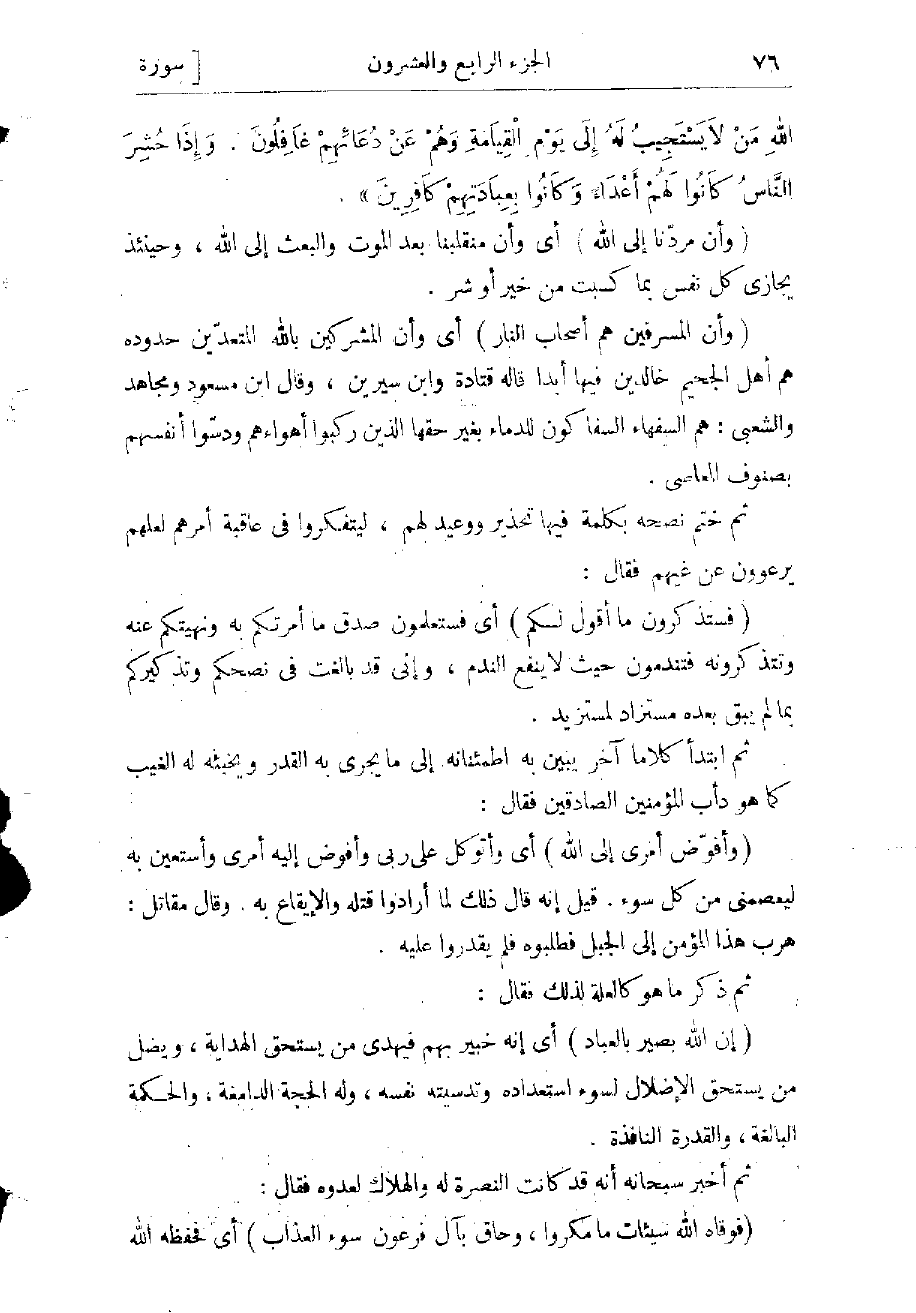 ٧٦ الجزء الرابع والعشرون [ سورة
اللهِ مَنْ لاَ يَسْتَجِيبُ لَهُ إِلَى يَوْمِ الْقِيَامَةِ وَهُمْ عَنْ دُعَائِهِمْ غَافِلُونَ . وَإِذَا حُشِرَ
النَّاسُ كَانُوا لَهُمْ أَعْدَاءً وَكَانُوا بِعِبَادَتِهِمْ كَافِرِينَ » .
( وأن مردّنا إلى الله ) أى وأن منقلبنا بعد الموت والبعث إلى الله ، وحينئذ
يجازى كل نفس بما كسبت من خير أو شر .
( وأن المسرفين هم أصحاب النار ) أى وأن المشركين بالله المتعدّين حدوده
هم أهل الجحيم خالدين فيها أبدا قاله قتادة وابن سيرين ، وقال ابن مسعود ومجاهد
والشعبى : هم السفهاء السفاكون للدماء بغير حقها الذين ركبوا أهواءهم ودسّوا أنفسهم
بصنوف المعاصى .
ثم ختم نصحه بكلمة فيها تحذير ووعيد لهم ، ليتفكروا فى عاقبة أمرهم لعلهم
يرعوون عن غيهم فقال :
( فستذكرون ما أقول لكم ) أى فستعلمون صدق ما أمرتكم به ونهيتكم عنه
وتتذكرونه فتندمون حيث لاينفع الندم ، وإنى قد بالغت فى نصحكم وتذكيركم
بما لم يبق بعده مستزاد لمستزيد .
ثم ابتدأ كلاما آخر يبين به اطمئنانه إلى ما يجرى به القدر ويخبئه له الغيب
كما هو دأب المؤمنين الصادقين فقال :
( وأفوّض أمرى إلى الله ) أى وأتوكل على ربى وأفوض إليه أمرى وأستعين به
ليعصمنى من كل سوء . قيل إنه قال ذلك لما أرادوا قتله والإيقاع به . وقال مقاتل :
هرب هذا المؤمن إلى الجبل فطلبوه فلم يقدروا عليه .
ثم ذكر ما هو كالعلة لذلك فقال :
( إن الله بصير بالعباد ) أى إنه خبير بهم فيهدى من يستحق الهداية ، ويضل
من يستحق الإضلال لسوء استعداده وتدسيته نفسه ، وله الحجة الدامغة ، والحكمة
البالغة ، والقدرة النافذة .
ثم أخبر سبحانه أنه قد كانت النصرة له والهلاك لعدوه فقال :
( فوقاه الله سيئات ما مكروا ، وحاق بآل فرعون سوء العذاب ) أى فحفظه الله